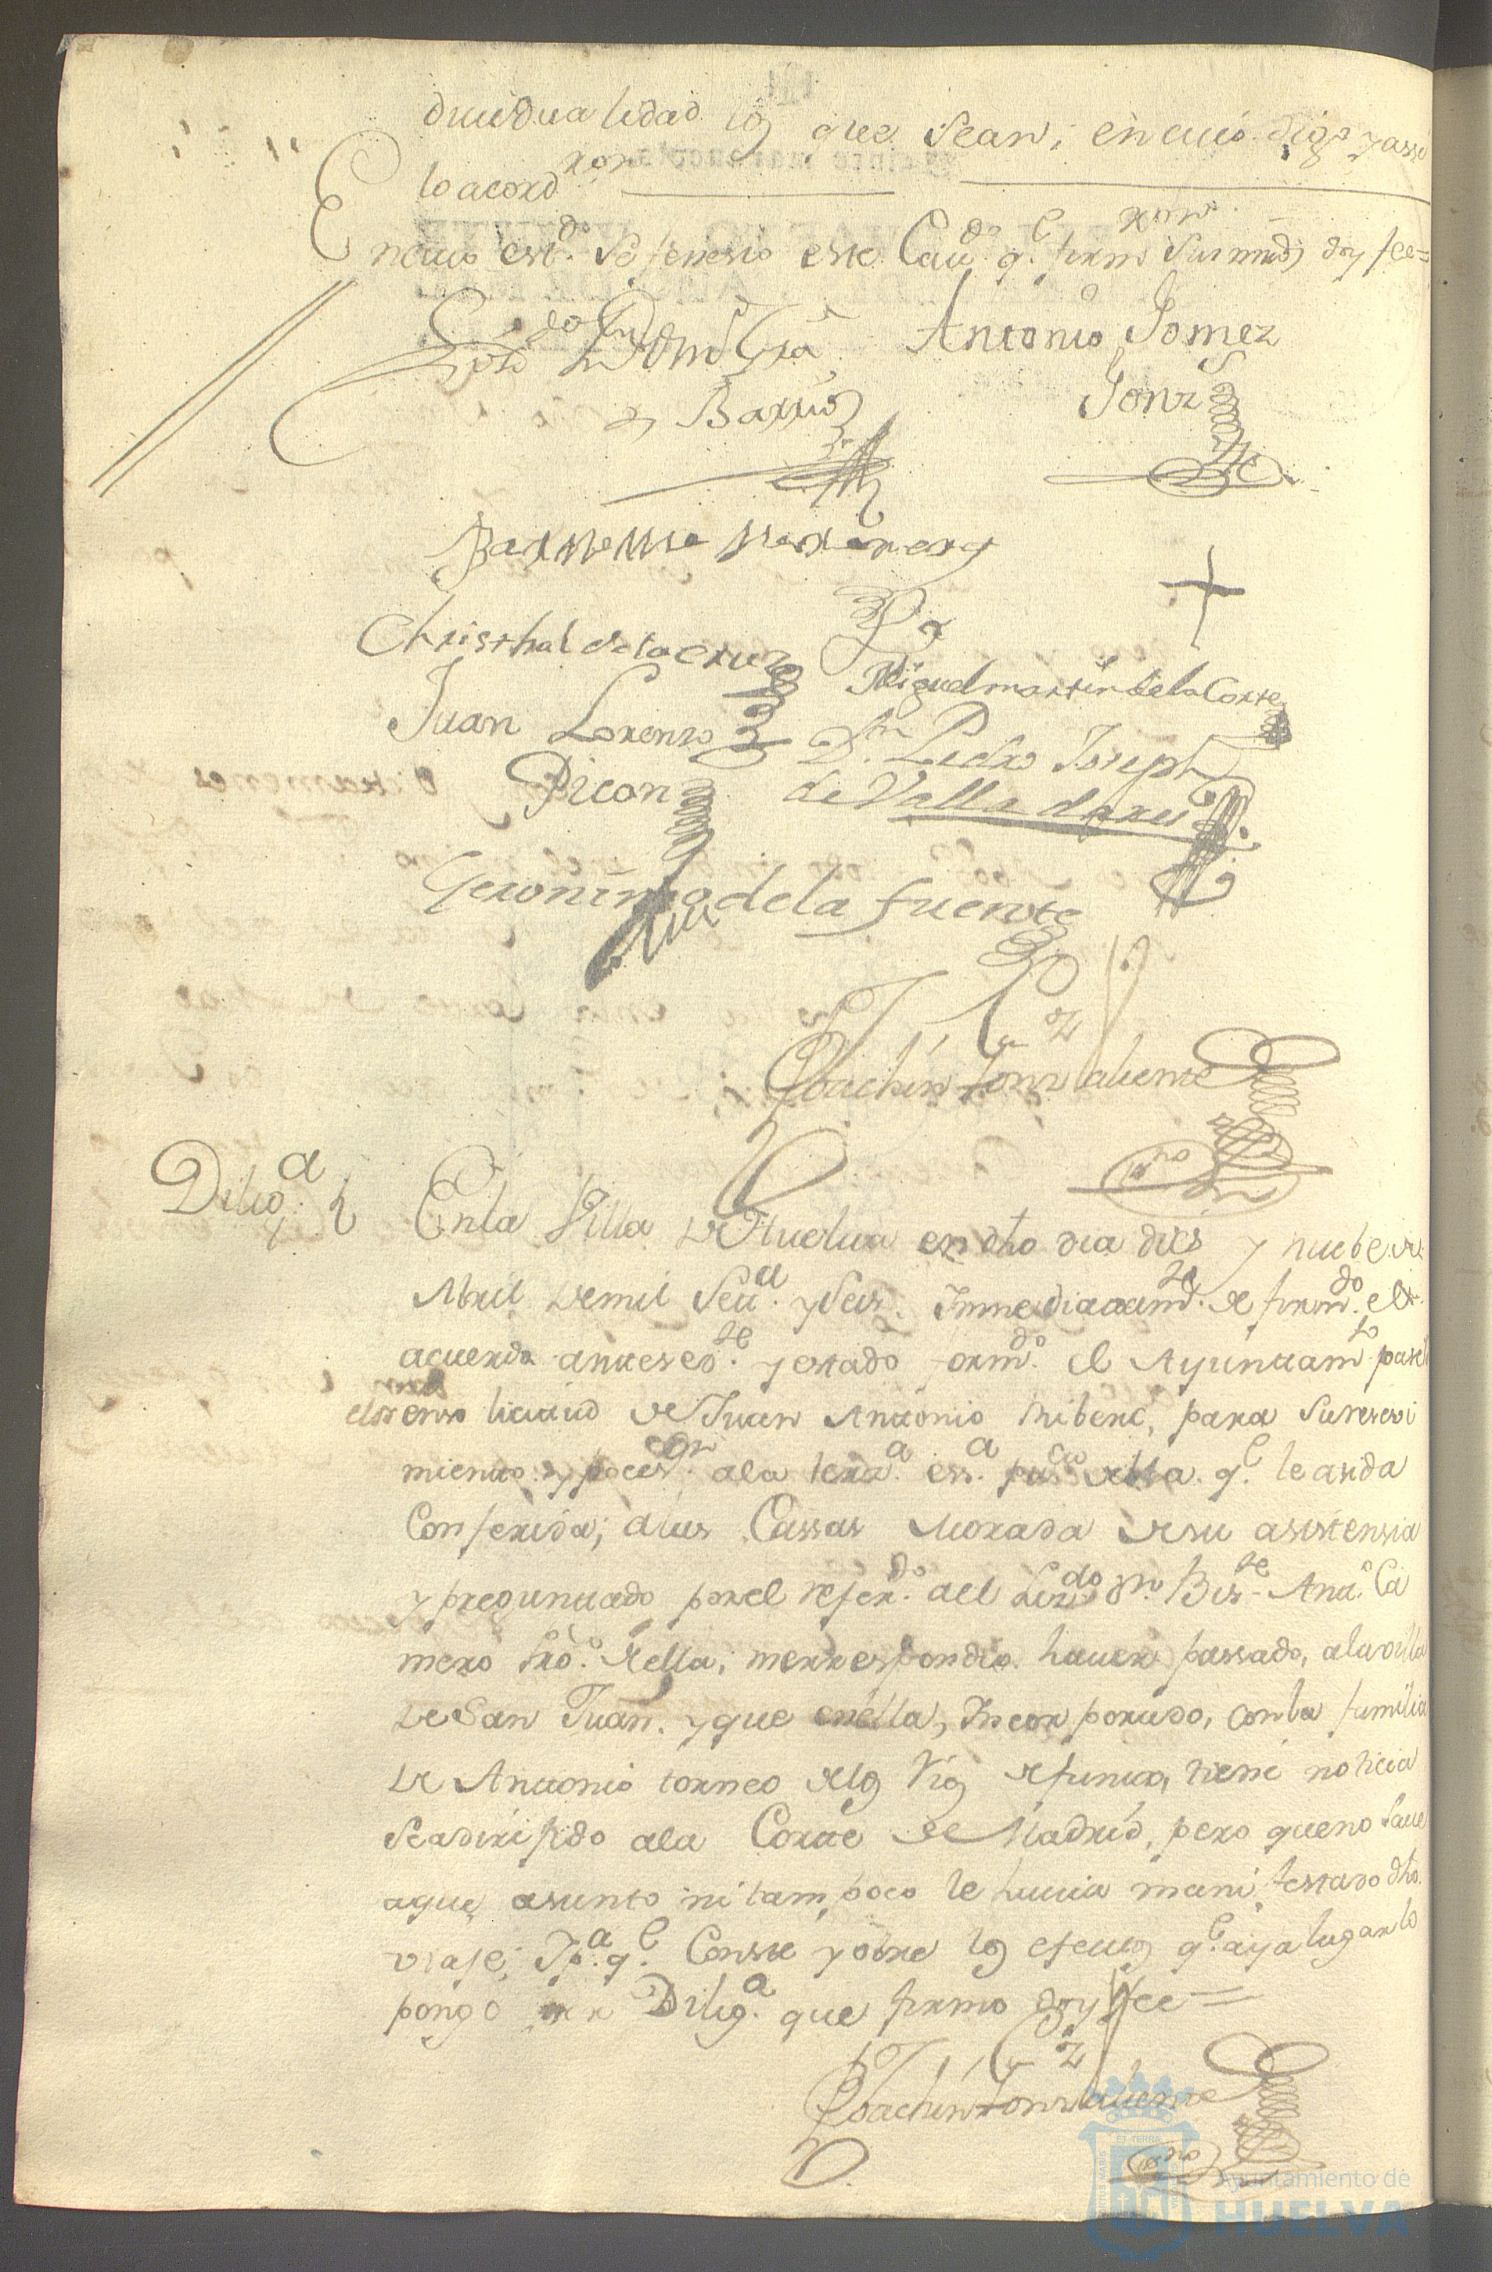 duidualidad los que sean, en cuio digo y assi
lo acordron
En cuio est.do se fenesio este Cau.do q.e firmron sus mrds doy fee=
Antonio Gomez
Gonz
de Barrios
Christhal de la Cruz
Miguel martin de la Corte
Juan Lorenzo
Picon
Dn. Pedro Joseph
de Valladares
Geronimo de la fuente
Joachin Gonz
Dilig.a
En la Villa de Huelva en dho dia dies y nuebe de
Abril de mil Set.a y Seis. Immediatam.te de firmd.o el
acuerdo antesed.te y estado form.do el Ayuntam.to pase
en licitud de Juan Antonio Ribero, para su resevi
miento y poces.on a la terz.a ess.a pu.ca della q.e le anda
Conferida, a las Cassas Morada de su asistensia
y preguntado por el refer.do del Lizdo Dn. Bis.te Ant.o Ca
mero della, me rrespondio hauer passado, a la villa
de San Juan. y que en ella, Incorporado, con la familia
de Antonio torneo de los Rios difunto, tiene noticia
se a dirijido a la Corte de Madrid, pero que no saue
a que asunto ni tampoco le hauia manifestado dho
viaje; Y p.a q.e Conste y obre los efectos q.e aya lugar lo
pongo por Dilig.a que firmo doy fee=
Joachin Gonz
Ayuntamiento de
HUELVA